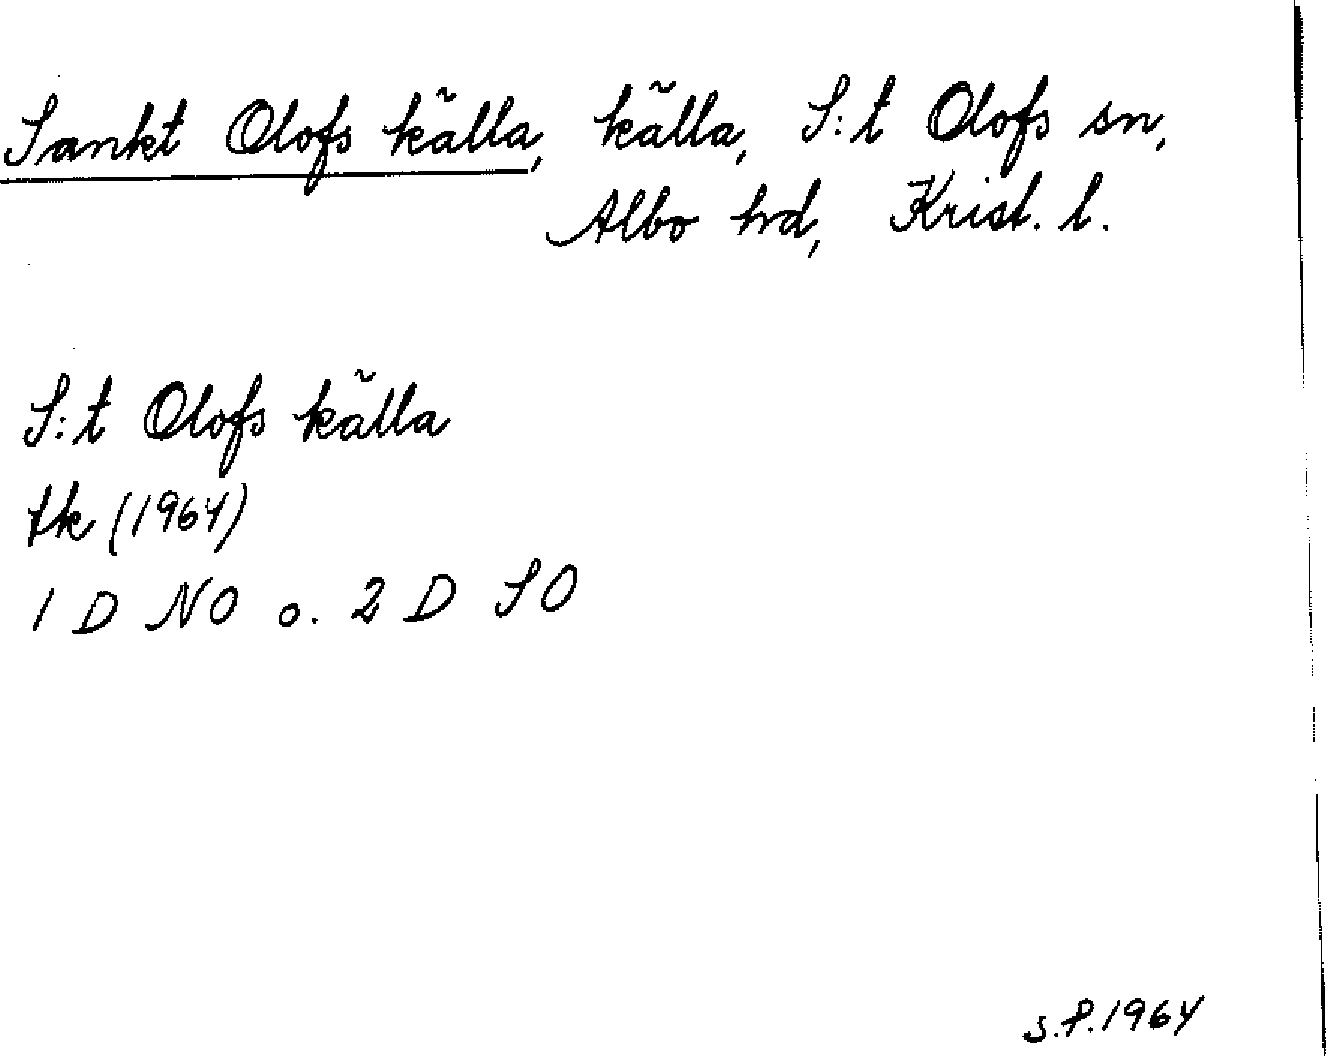 Sankt Olofs källa, källa, S:t Olofs sn,
Albo hrd, Krist. l.
S:t Olofs källa
tk (1964)
1 D NO o. 2 D SO
S.P. 1964